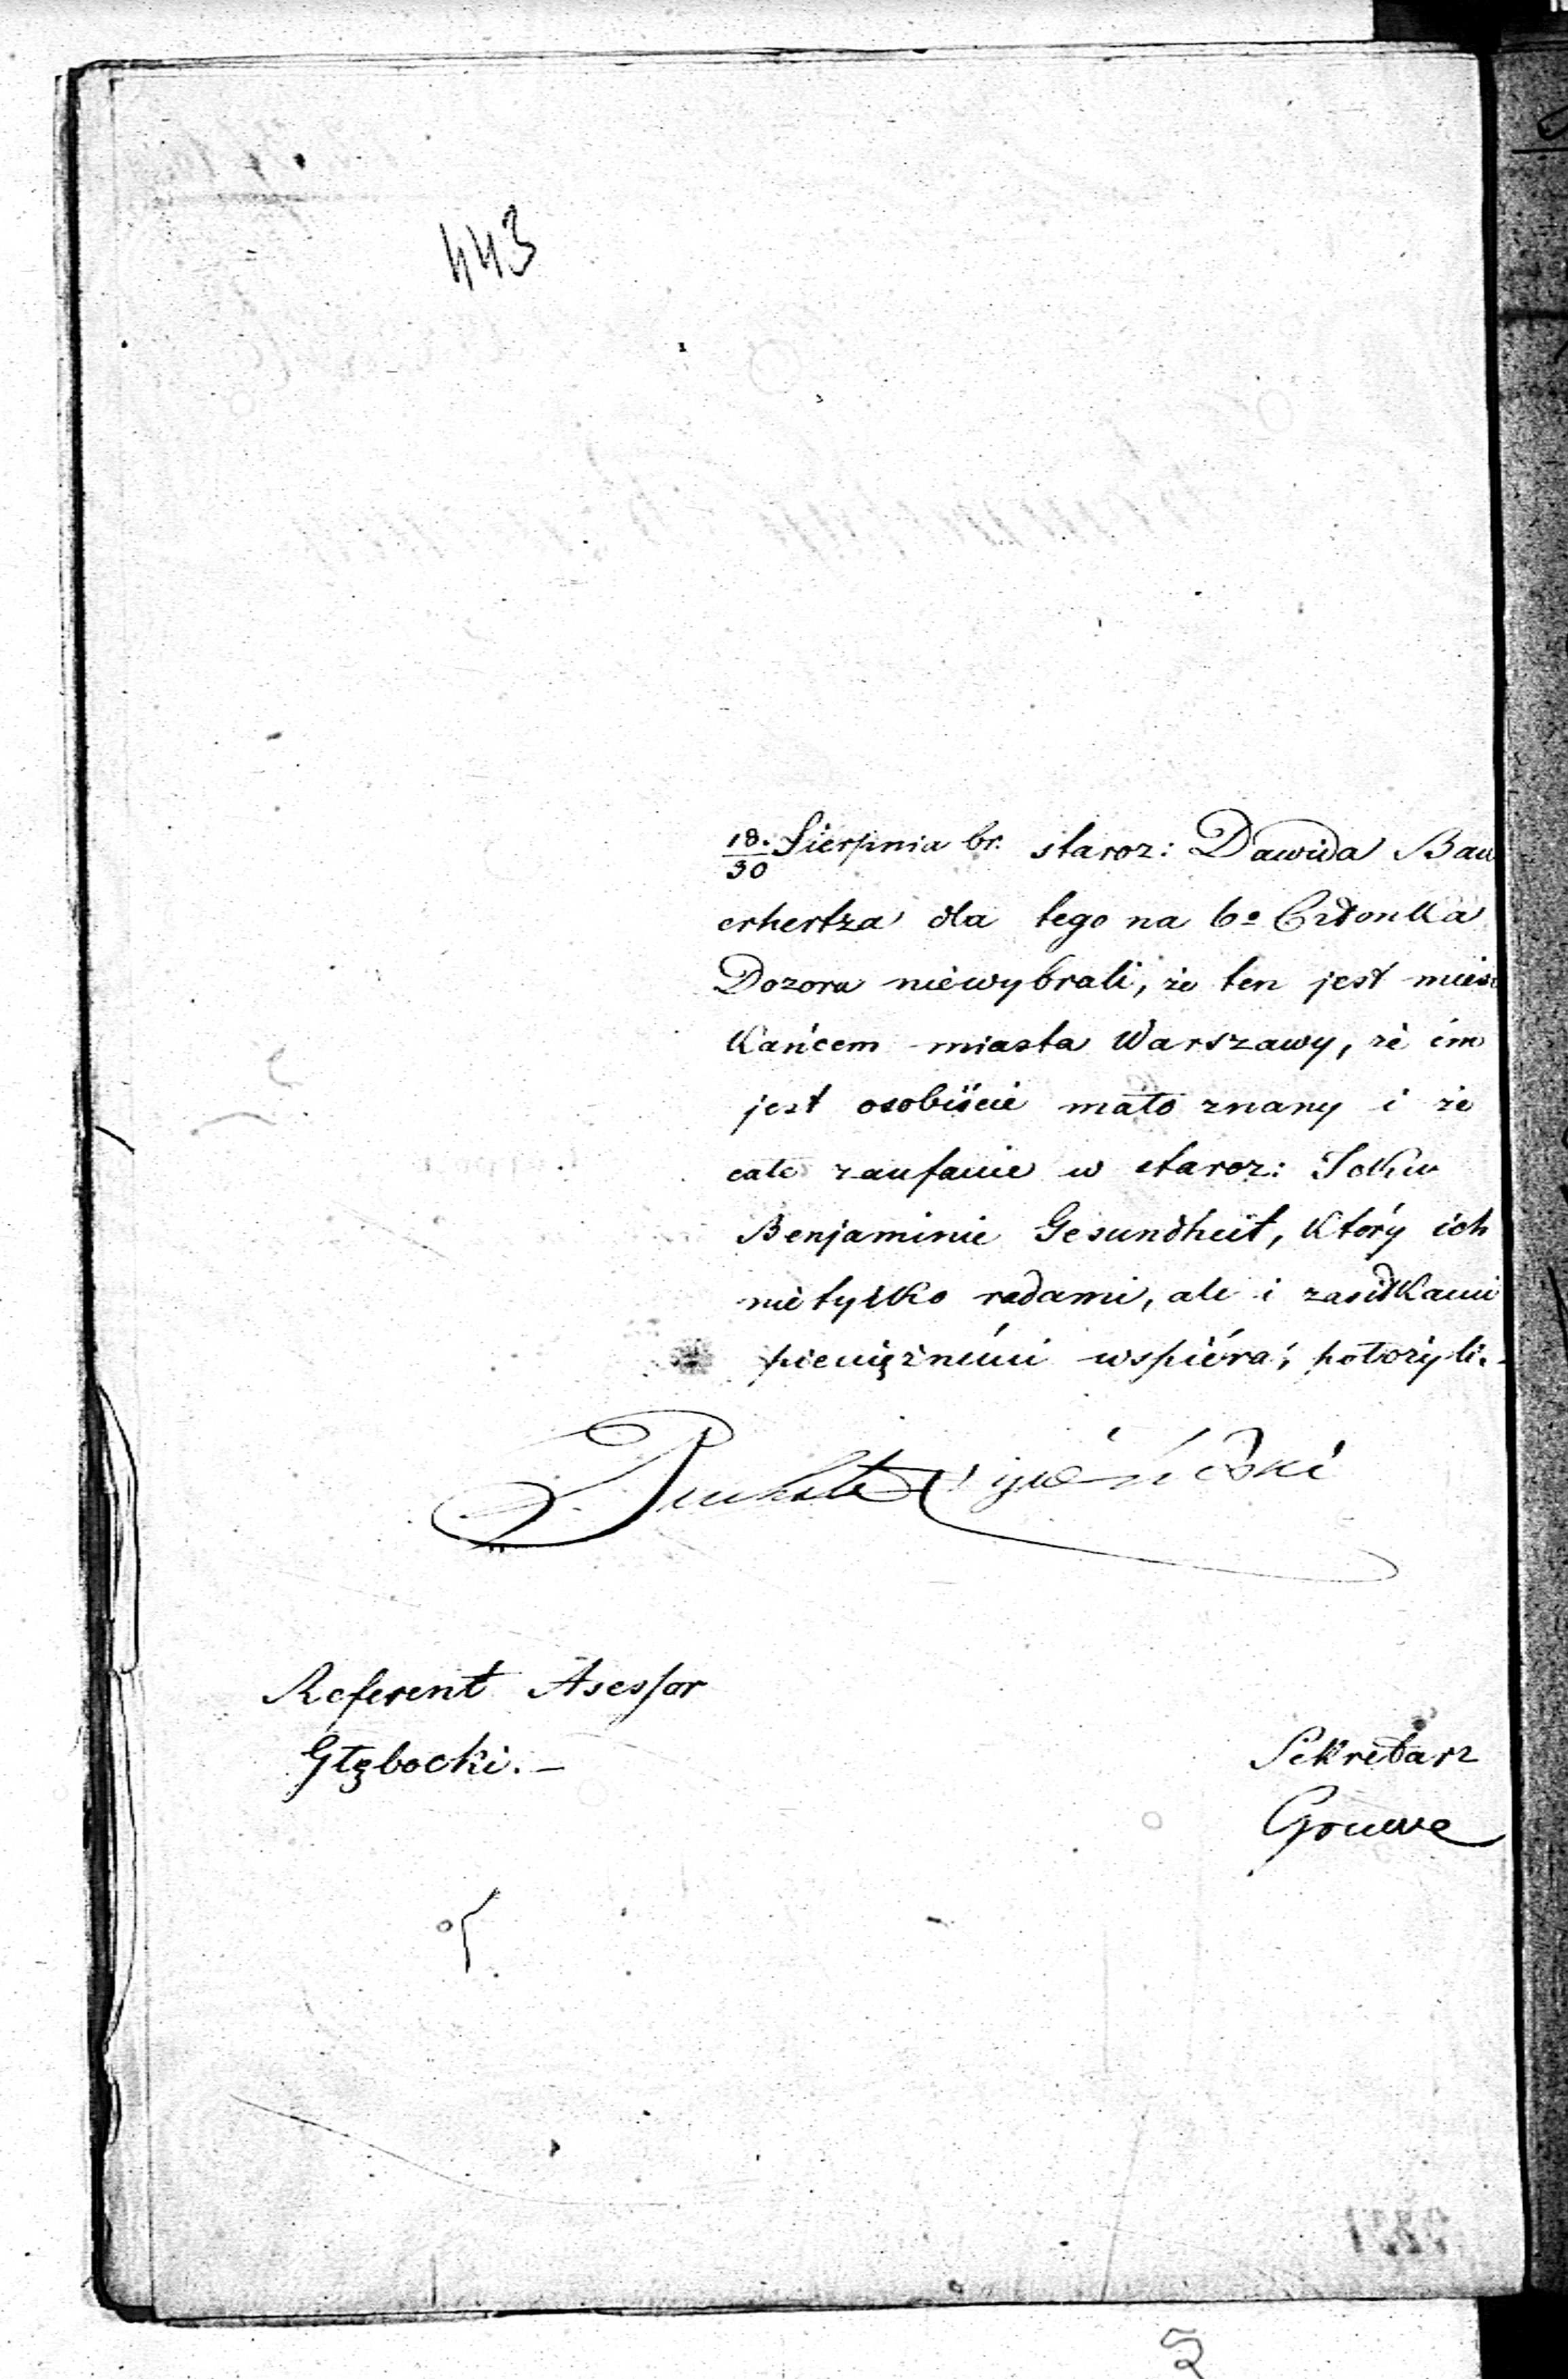 443
18./30 Sierpnia br. staroz: Dawida Bau
erhertza dla tego na 6º Członka
Dozoru niewybrali, że ten jest miesz
kańcem miasta Warszawy, że im
jest osobiście mało znany i że
całe zaufanie w staroz: Icku
Benjaminie Gesundheit, który ich
nietylko radami, ale i zasiłkami
pieniężnemi wspiéra, położyli.
Referent Asessor
Głębocki. —
Sekretarz